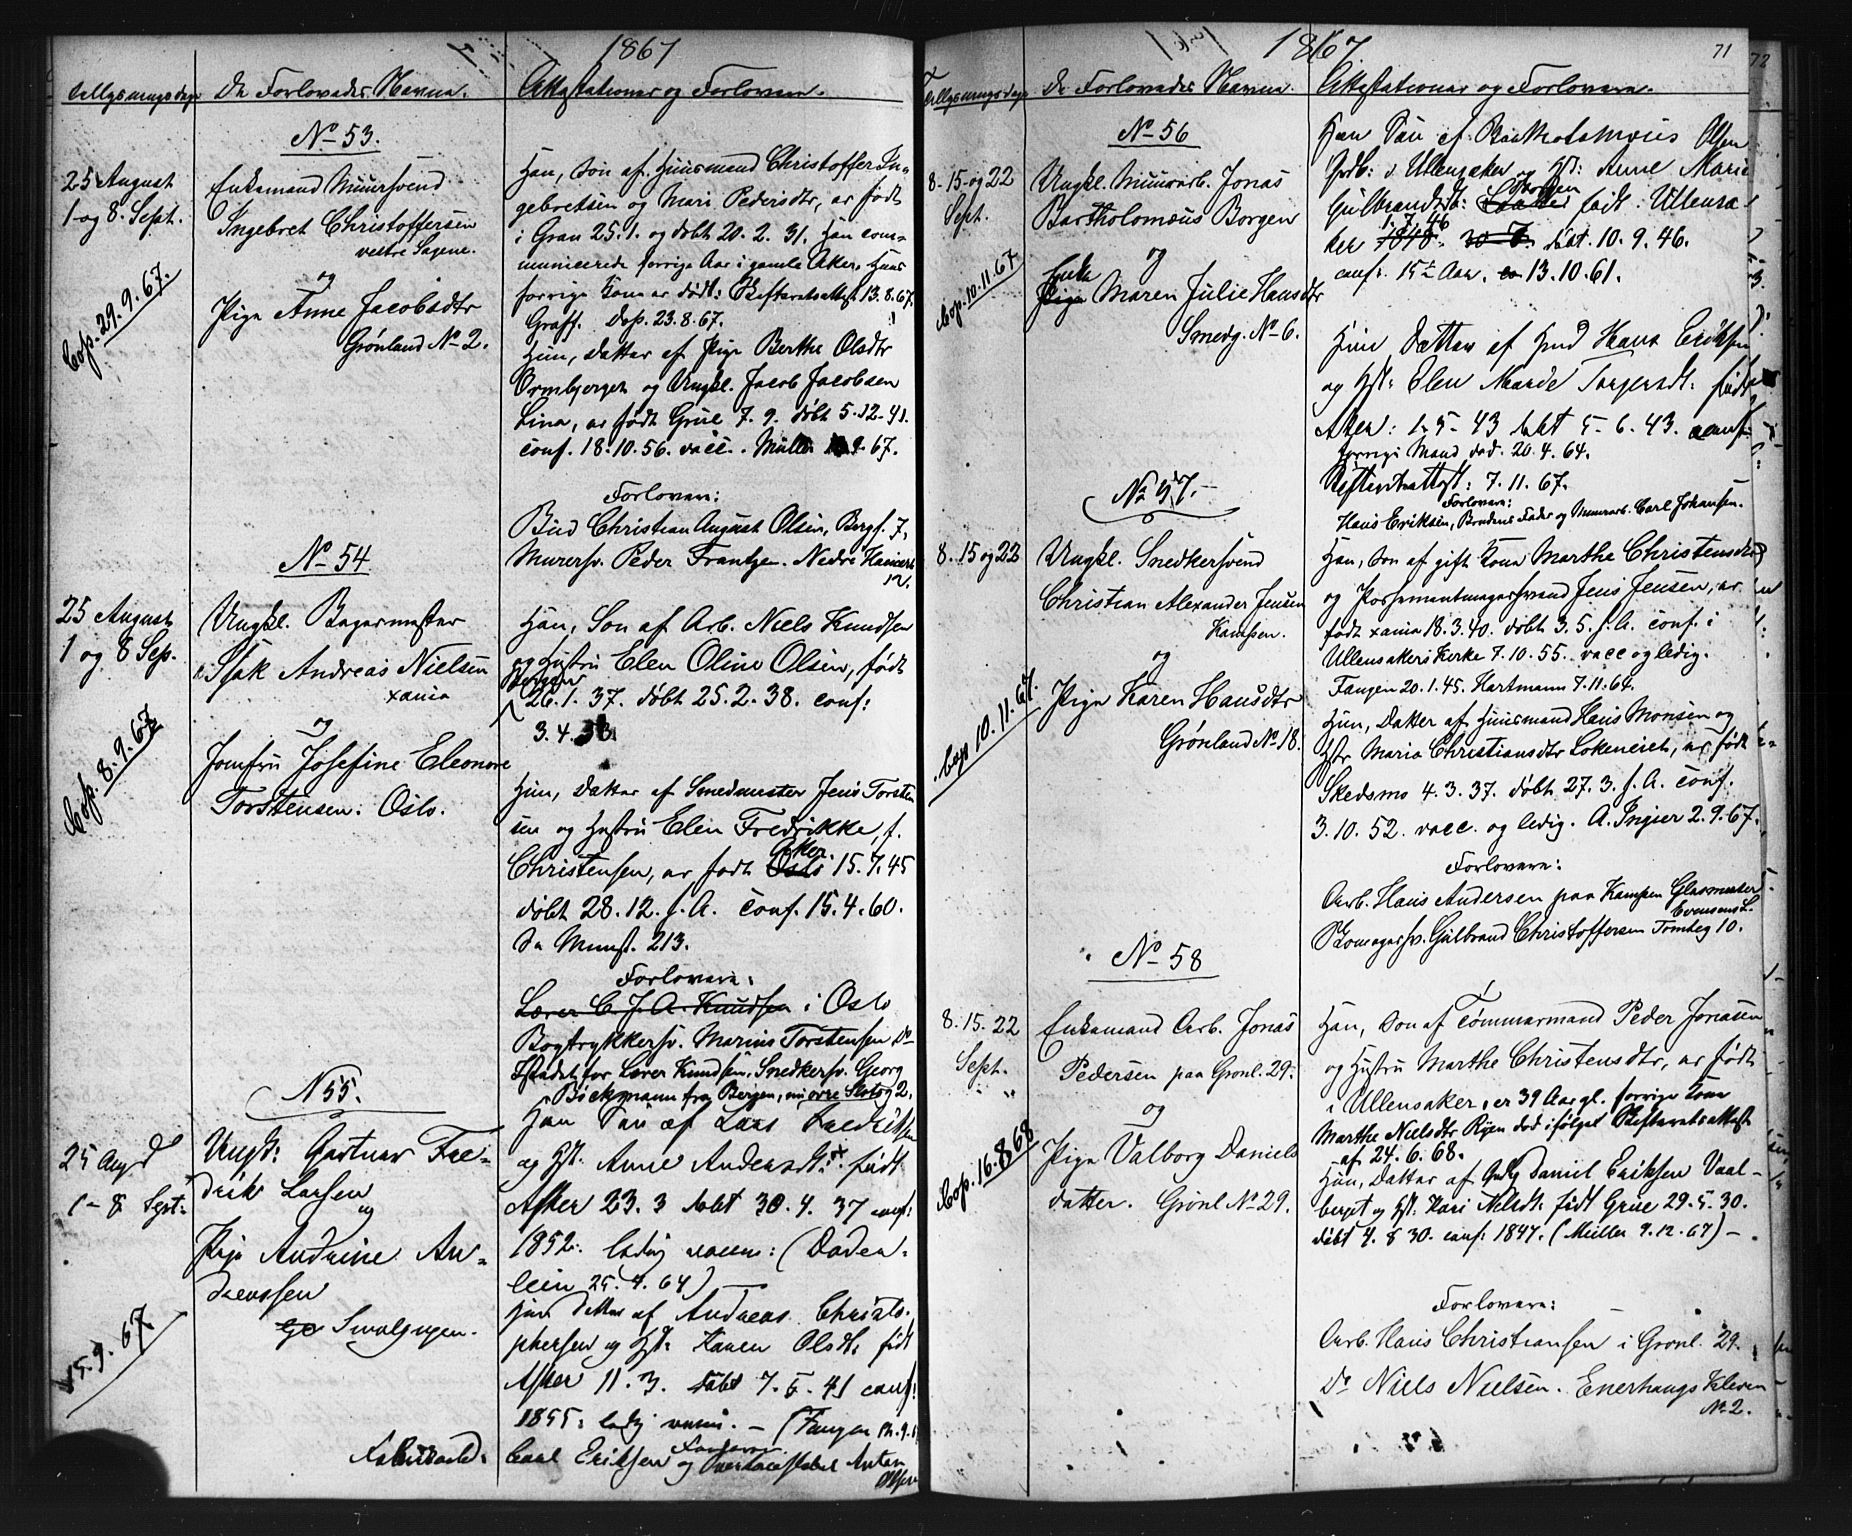 1867
Tillysningsdage De Forlovedes Navne. Attestationer og Forlovere.
No 53.
25 August
1 og 8. Sept.
Cop. 29.9.67.
Enkemand Muursvend
Ingebret Christoffersen
vestre Sagene.
og
Pige Anne Jacobsdtr
Grønland No 2.
Han, Søn af Huusmand Christoffer In-
gebretsen og Mari Pedersdtr, er født
i Gran 25.1. og døbt 20.2.31. Han com-
municerede forrige Aar i gamle Aker. Hans
forrige Kone er død: Skifteretsattest 13.8.67.
Graff. Dep. 23.8.67.
Hun, Datter af Pige Berthe Olsdtr
Ormbjerget og Ungkl. Jacob Jacobsen
Lina, er født Grue 7.9. døbt 5.12.41.
conf. 18.10.56. vacc. Müller 9.67.
Forlovere:
Bud Christian August Olsen, Bergf. 7,
Murersv. Peder Frantzen. Nedre
12.
No 54
25 August
1 og 8 Sep.
Cop. 8.9.67
Ungkl. Bagermester
Isak Andreas Nielsen
xania
og
Jomfru Josefine Eleonore
Torstensen. Oslo.
Han, Søn af Arb. Niels Knudsen
og Hustru Elen Oline Olsen, født
Bergen
26.1.37. døbt 25.2.38. conf:
3.4.
Hun, Datter af Smedmester Jens Torsten
sen og Hustru Elen Fredrikke, f.
Aker
Christensen, er født Oslo 15.7.45
døbt 28.12. s.A. conf. 15.4.60.
Se Minist. 213.
Forlovere:
Lærer C. J. A. Knudsen i Oslo
Bogtrykkersv. Marius Torstensen Do
Istedetfor Lærer Knudsen, Snedkersv. Georg
Böckmann fra Bergen, nu øvre Slotsg 2.
N 55.
25 Augd
1 - 8 Sept:
15.9.67
Ungk: Gartner Fre-
drik Larsen
og
Pige Andrine An-
dreassen
Han Søn af Lars Fredriksen
og Hst. Anne Andersdt: født
Asker 23.3 døbt 30.4.37 conf:
1852. ledig vacc: (Daden-
lein 25.4.64)
Hun Datter af Andreas Christo-
phersen og Hst. Karen Olsdt. født
Asker 11.3. døbt 7.5.41 conf:
1855: ledig vacc. - (Fangen
Forlovere
Carl Eriksen og Anton
Olsen
1867
71
Tillysningsdage De Forlovedes Navne. Attestationer og Forlovere.
No 56
8-15-og 22
Sept.
Cop. 10.11.67
Ungkl. Muurarb. Jonas
Bartholomæus Borgen
og
Enke
Pige Maren Julie Hansdtr
Smedg. No 6.
Han Søn af Bartholomæus Olsen
Grdb: i Ullensaker Hst: Anne Marie
Borgen
Gulbrandsdt: født: Ullensa
1.7.46
ker 1818. døbt. 10.9.46.
conf. 15 Aar. 13.10.61.
Hun Datter af Gmd Hans Eriksen
og Hst: Elen Marie Torgersdt: født
Aker: 1-5-43 døbt 5.6.43. conf
forrige Mand død. 20.4.64.
Skifteretsattest: 7.11.67.
Forlovere:
Hans Eriksen, Brudens Fader og Murarb. Carl Johansen.
No 57.
8. 15 og 22
Cop 10.11.67.
Ungkl. Snedkersvend
Christian Alexander Jensen
Kampen.
og
Pige Karen Hansdtr
Grønland No 18.
Han, Søn af gift Kone Marthe Christensdtr
og Possementmagersvend Jens Jensen, er
født xania 18.3.40. døbt 3.5. s.A. conf. i
Ullensakers Kirke 7.10.55. vacc og ledig.
Fangen 20.1.45. Hartmann 7.11.64.
Hun, Datter af Huusmand Hans Monsen og
Hstr Maria Christiansdtr Lokeneiet, er født
Skedsmo 4.3.37. døbt 27.3. s.A. conf.
3.10.52. vacc. og ledig. A. Ingier 2.9.67.
Forlovere:
Arb. Hans Andersen paa Kampen Glasmester
Evensens L.
Skomagersv. Gulbrand Christoffersen Tomteg 10.
No 58
8. 15. 22
Sept.
Cop. 16.8.68
Enkemand Arb. Jonas
Pedersen paa Grønl. 29.
og
Pige Valborg Daniels
datter. Grønl No 29.
Han, Søn af Tømmermand Peder Jonasen
og Hustru Marthe Christensdtr, er født
i Ullensaker, er 39 Aar gl. forrige Kone
Marthe Nielsdtr Ryen død ifølge Skifteretsattest
af 24.6.68.
Hun, Datter af Gmd Daniel Eriksen Vaal-
berget og Hst. Kari Nilsdt. født Grue 29.5.30.
døbt 4.8 30. conf: 1847. (Müller 9.12.67) -
Forlovere:
Arb. Hans Christiansen i Grønl. 29.
Do Niels Nielsen. Enerhaugs Kleven
No 2.
72